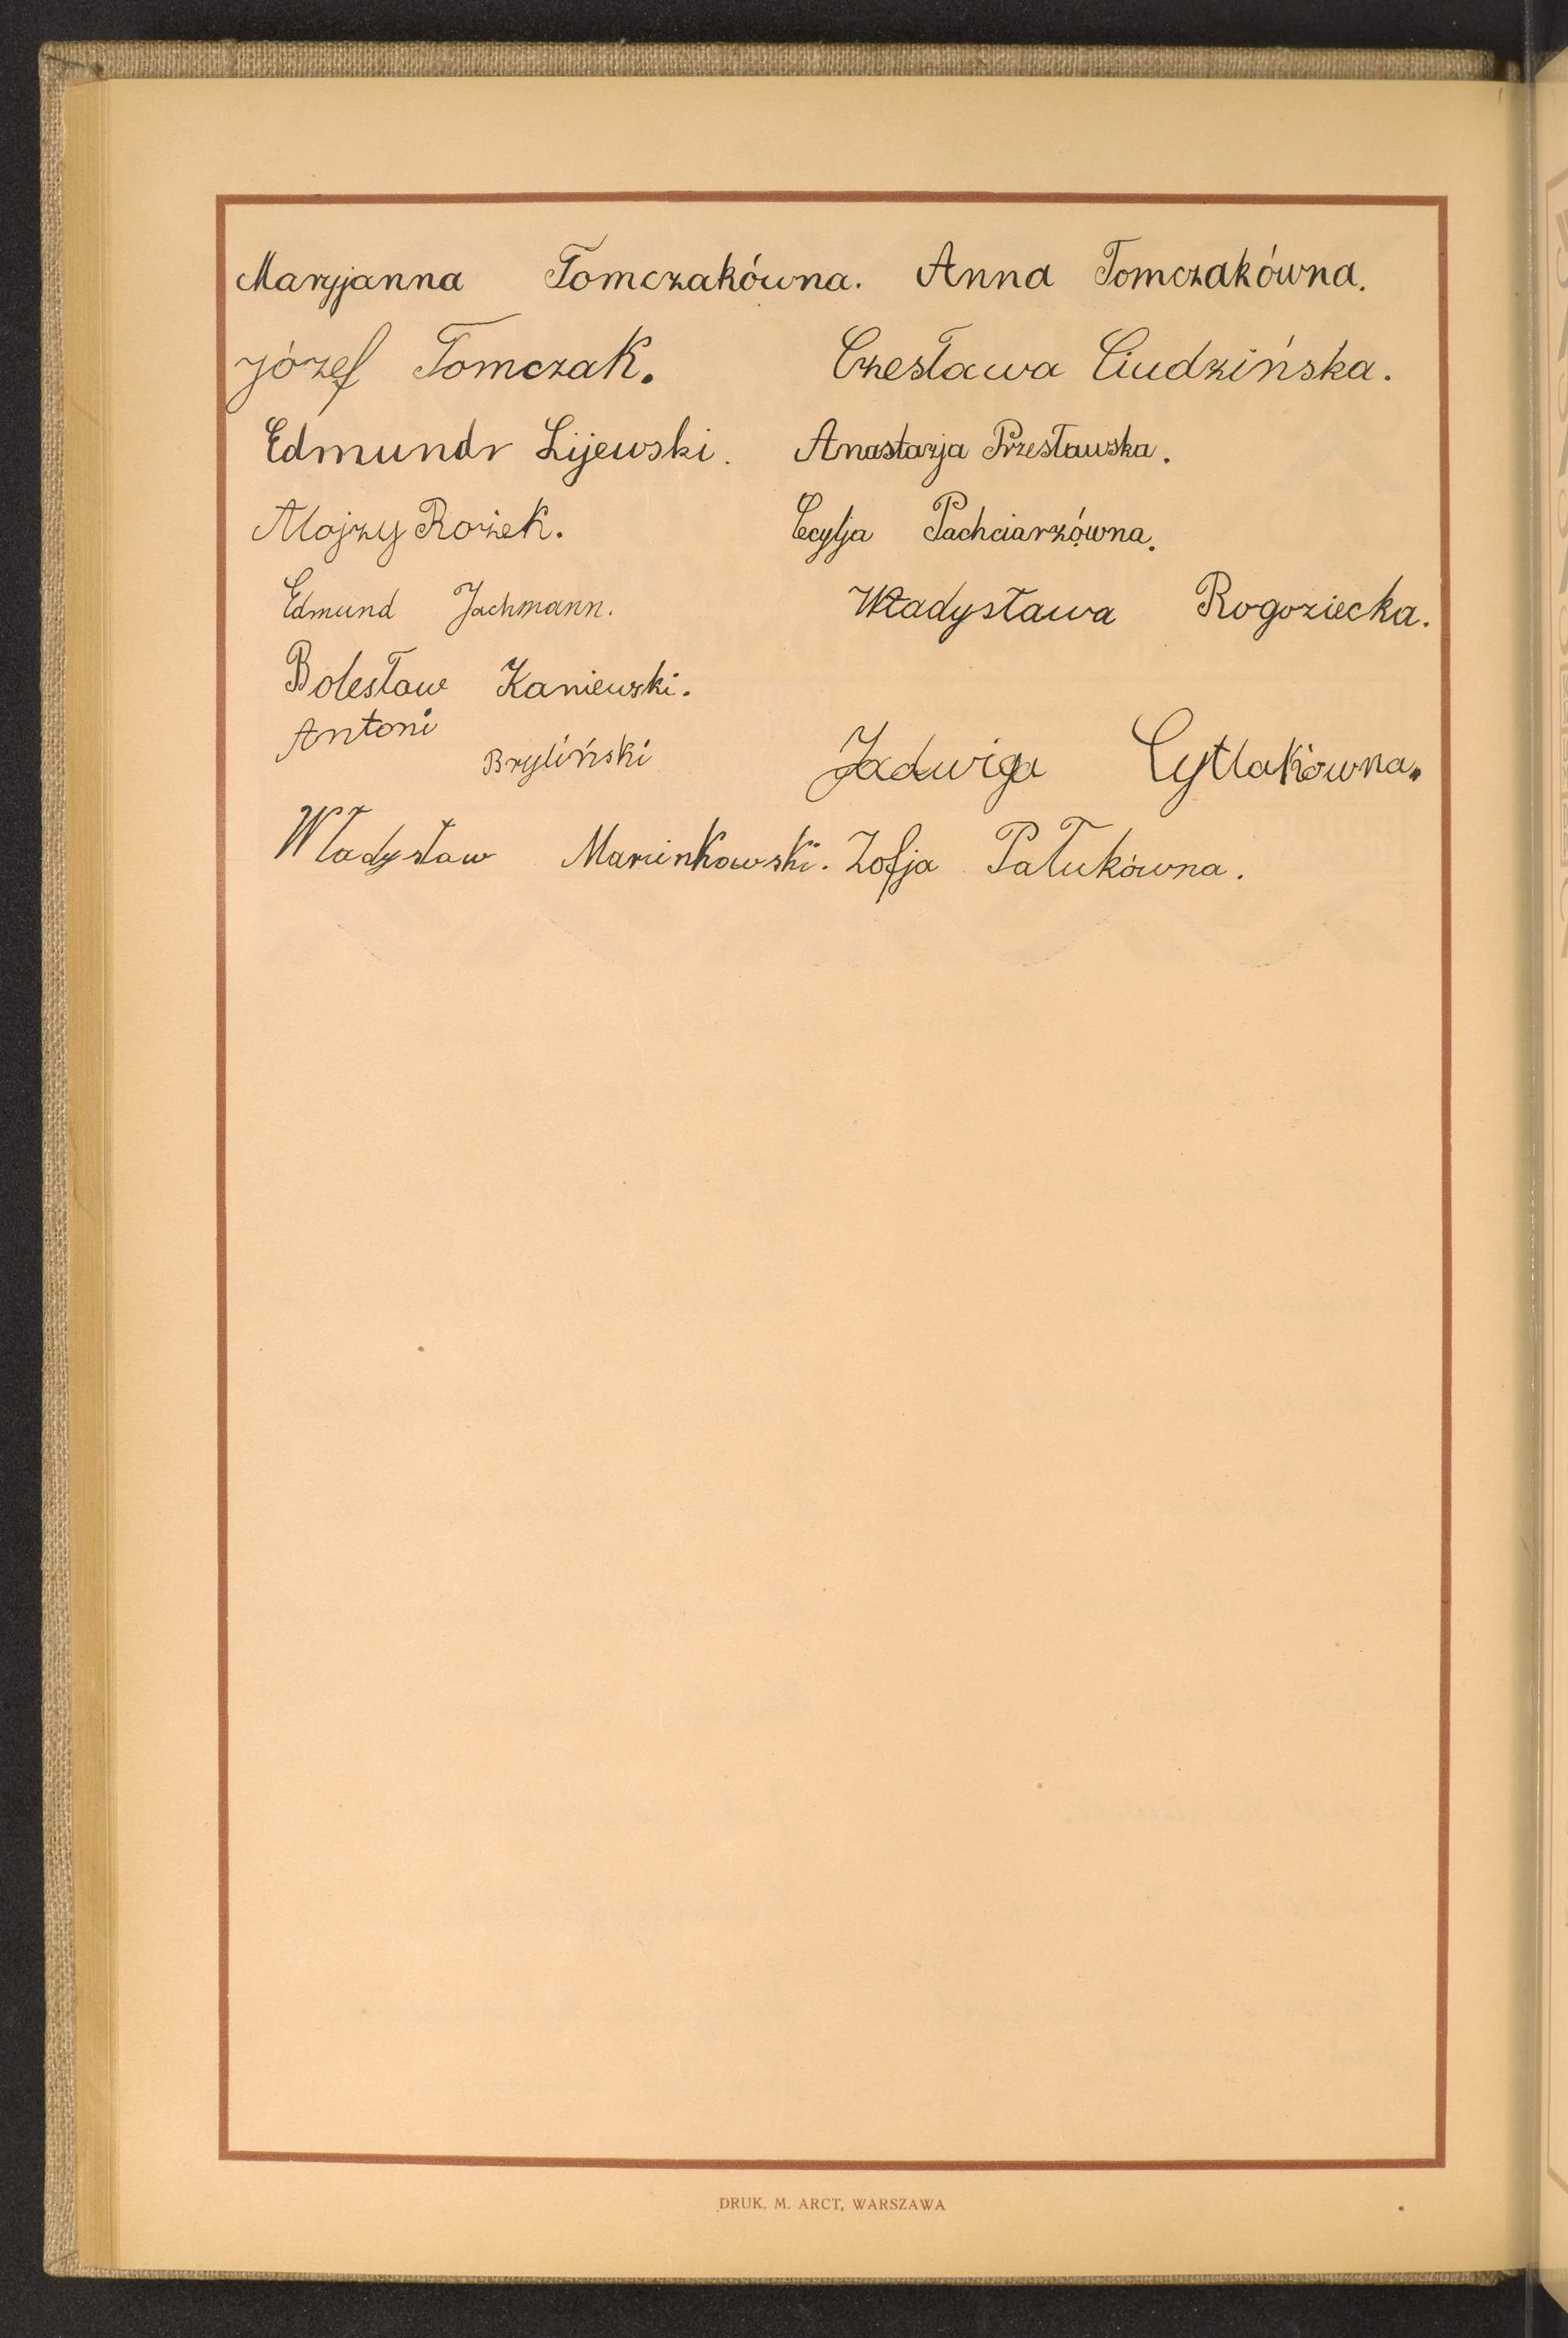 Maryjanna Tomczakówna. Anna Tomczakówna.
Józef Tomczak. Czesława Ciudzińska.
Edmundr Lijewski. Anastazja Przesławska.
Alojzy Rożek. Cecylja Pachciarzówna.
Edmund Jachmann. Władysława Rogoziecka.
Bolesław Kaniewski.
Antoni Bryliński Jadwiga Cytlakówna.
Władysław Marcinkowski. Zofja Pałukówna.
DRUK. M. ARCT, WARSZAWA